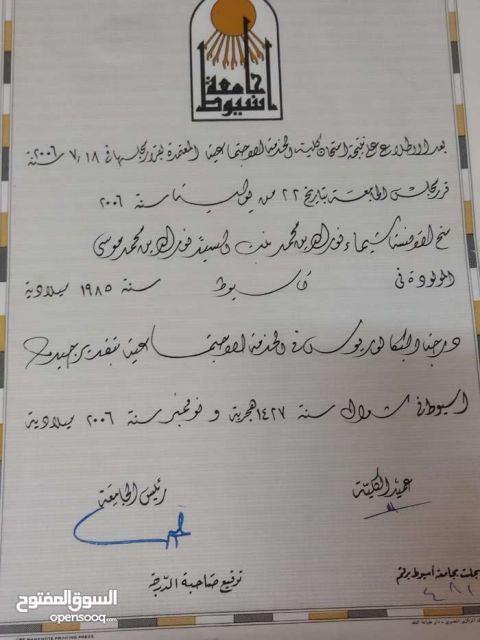 جامعة
أسيوط
بعد الاطلاع على نتيجة امتحان كلية الخدمة الاجتماعية المعتمدة بقرار مجلسها في ١٨ / ٧ سنة ٢٠٠٦
قرر مجلس الجامعة بتاريخ ٢٢ من يوليه سنة ٢٠٠٦
منح الآنسة شيماء نور الدين محمد بنت السيد نور الدين محمد موسى
المولودة في أسيوط سنة ١٩٨٥ ميلادية
درجة البكالوريوس في الخدمة الاجتماعية بتقدير جيد
أسيوط في شوال سنة ١٤٢٧ هجرية و نوفمبر سنة ٢٠٠٦ ميلادية
عميد الكلية
رئيس الجامعة
توقيع صاحبة الدرجة
سجلت بجامعة أسيوط برقم
السوق المفتوح
opensooq.com